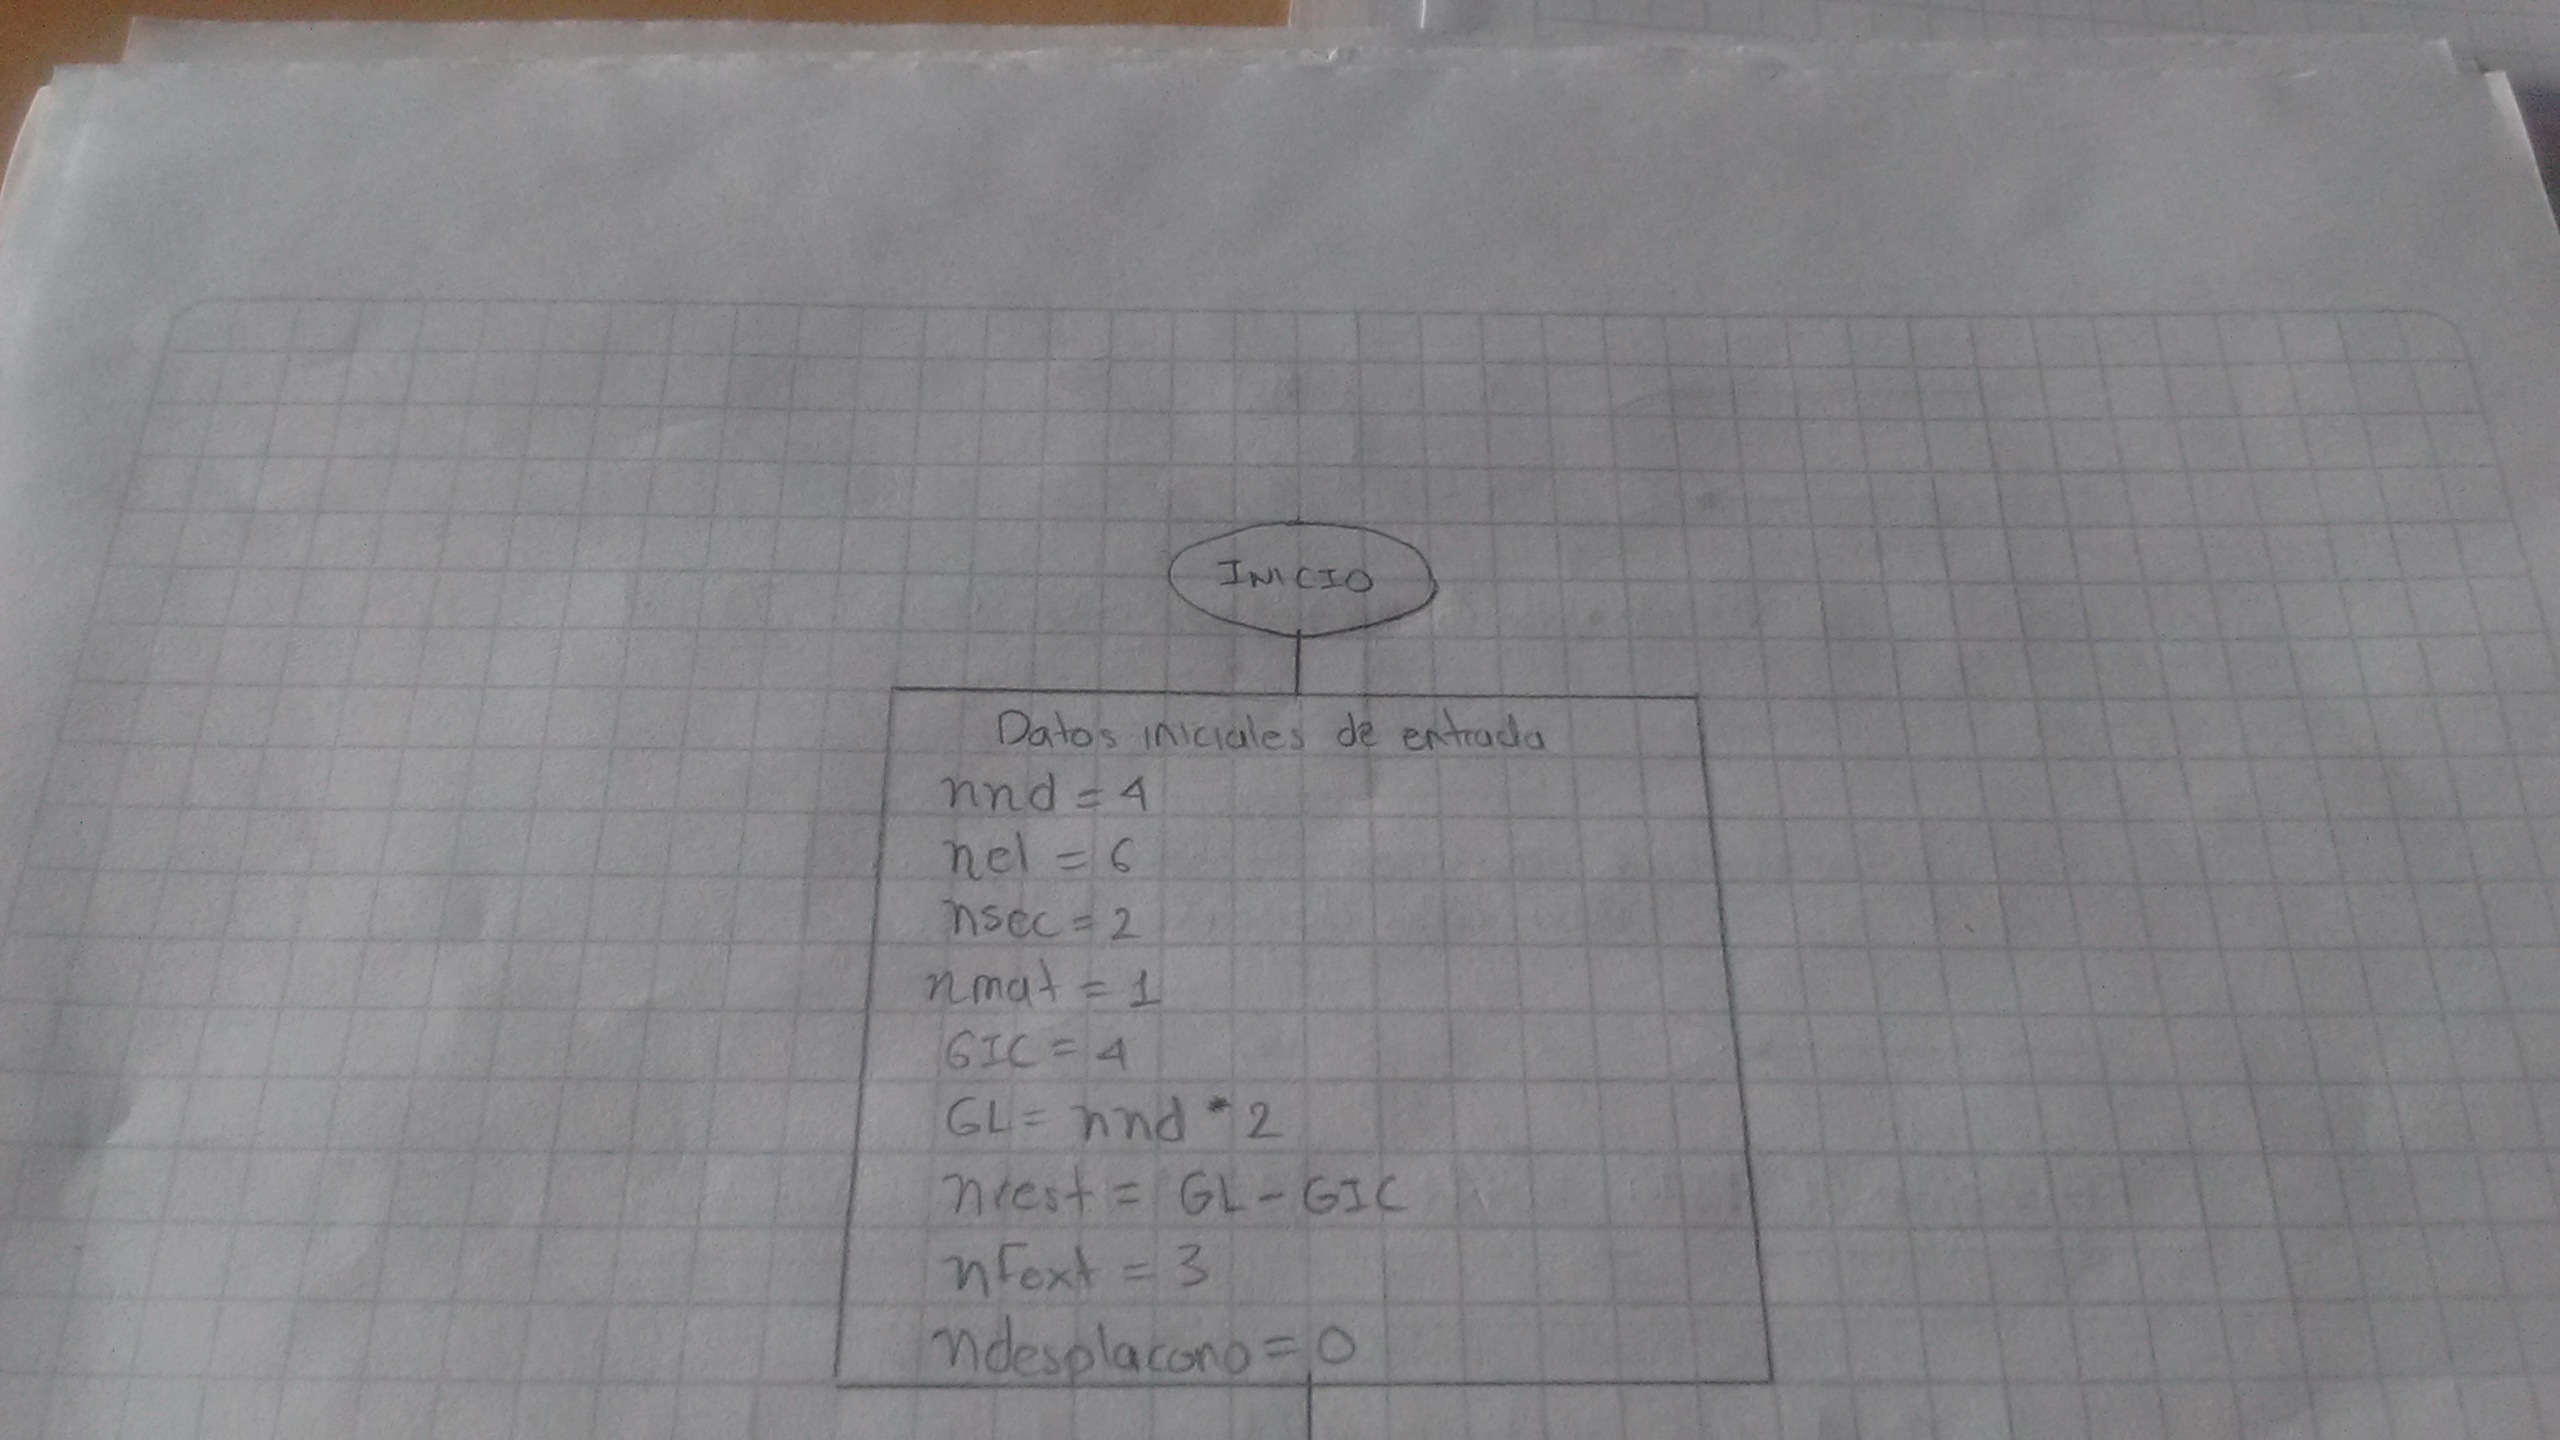 INICIO
Datos iniciales de entrada
nnd = 4
nel = 6
nsec = 2
nmat = 1
GIC = 4
GL = nnd * 2
nrest = GL - GIC
nFext = 3
ndesplacono = 0